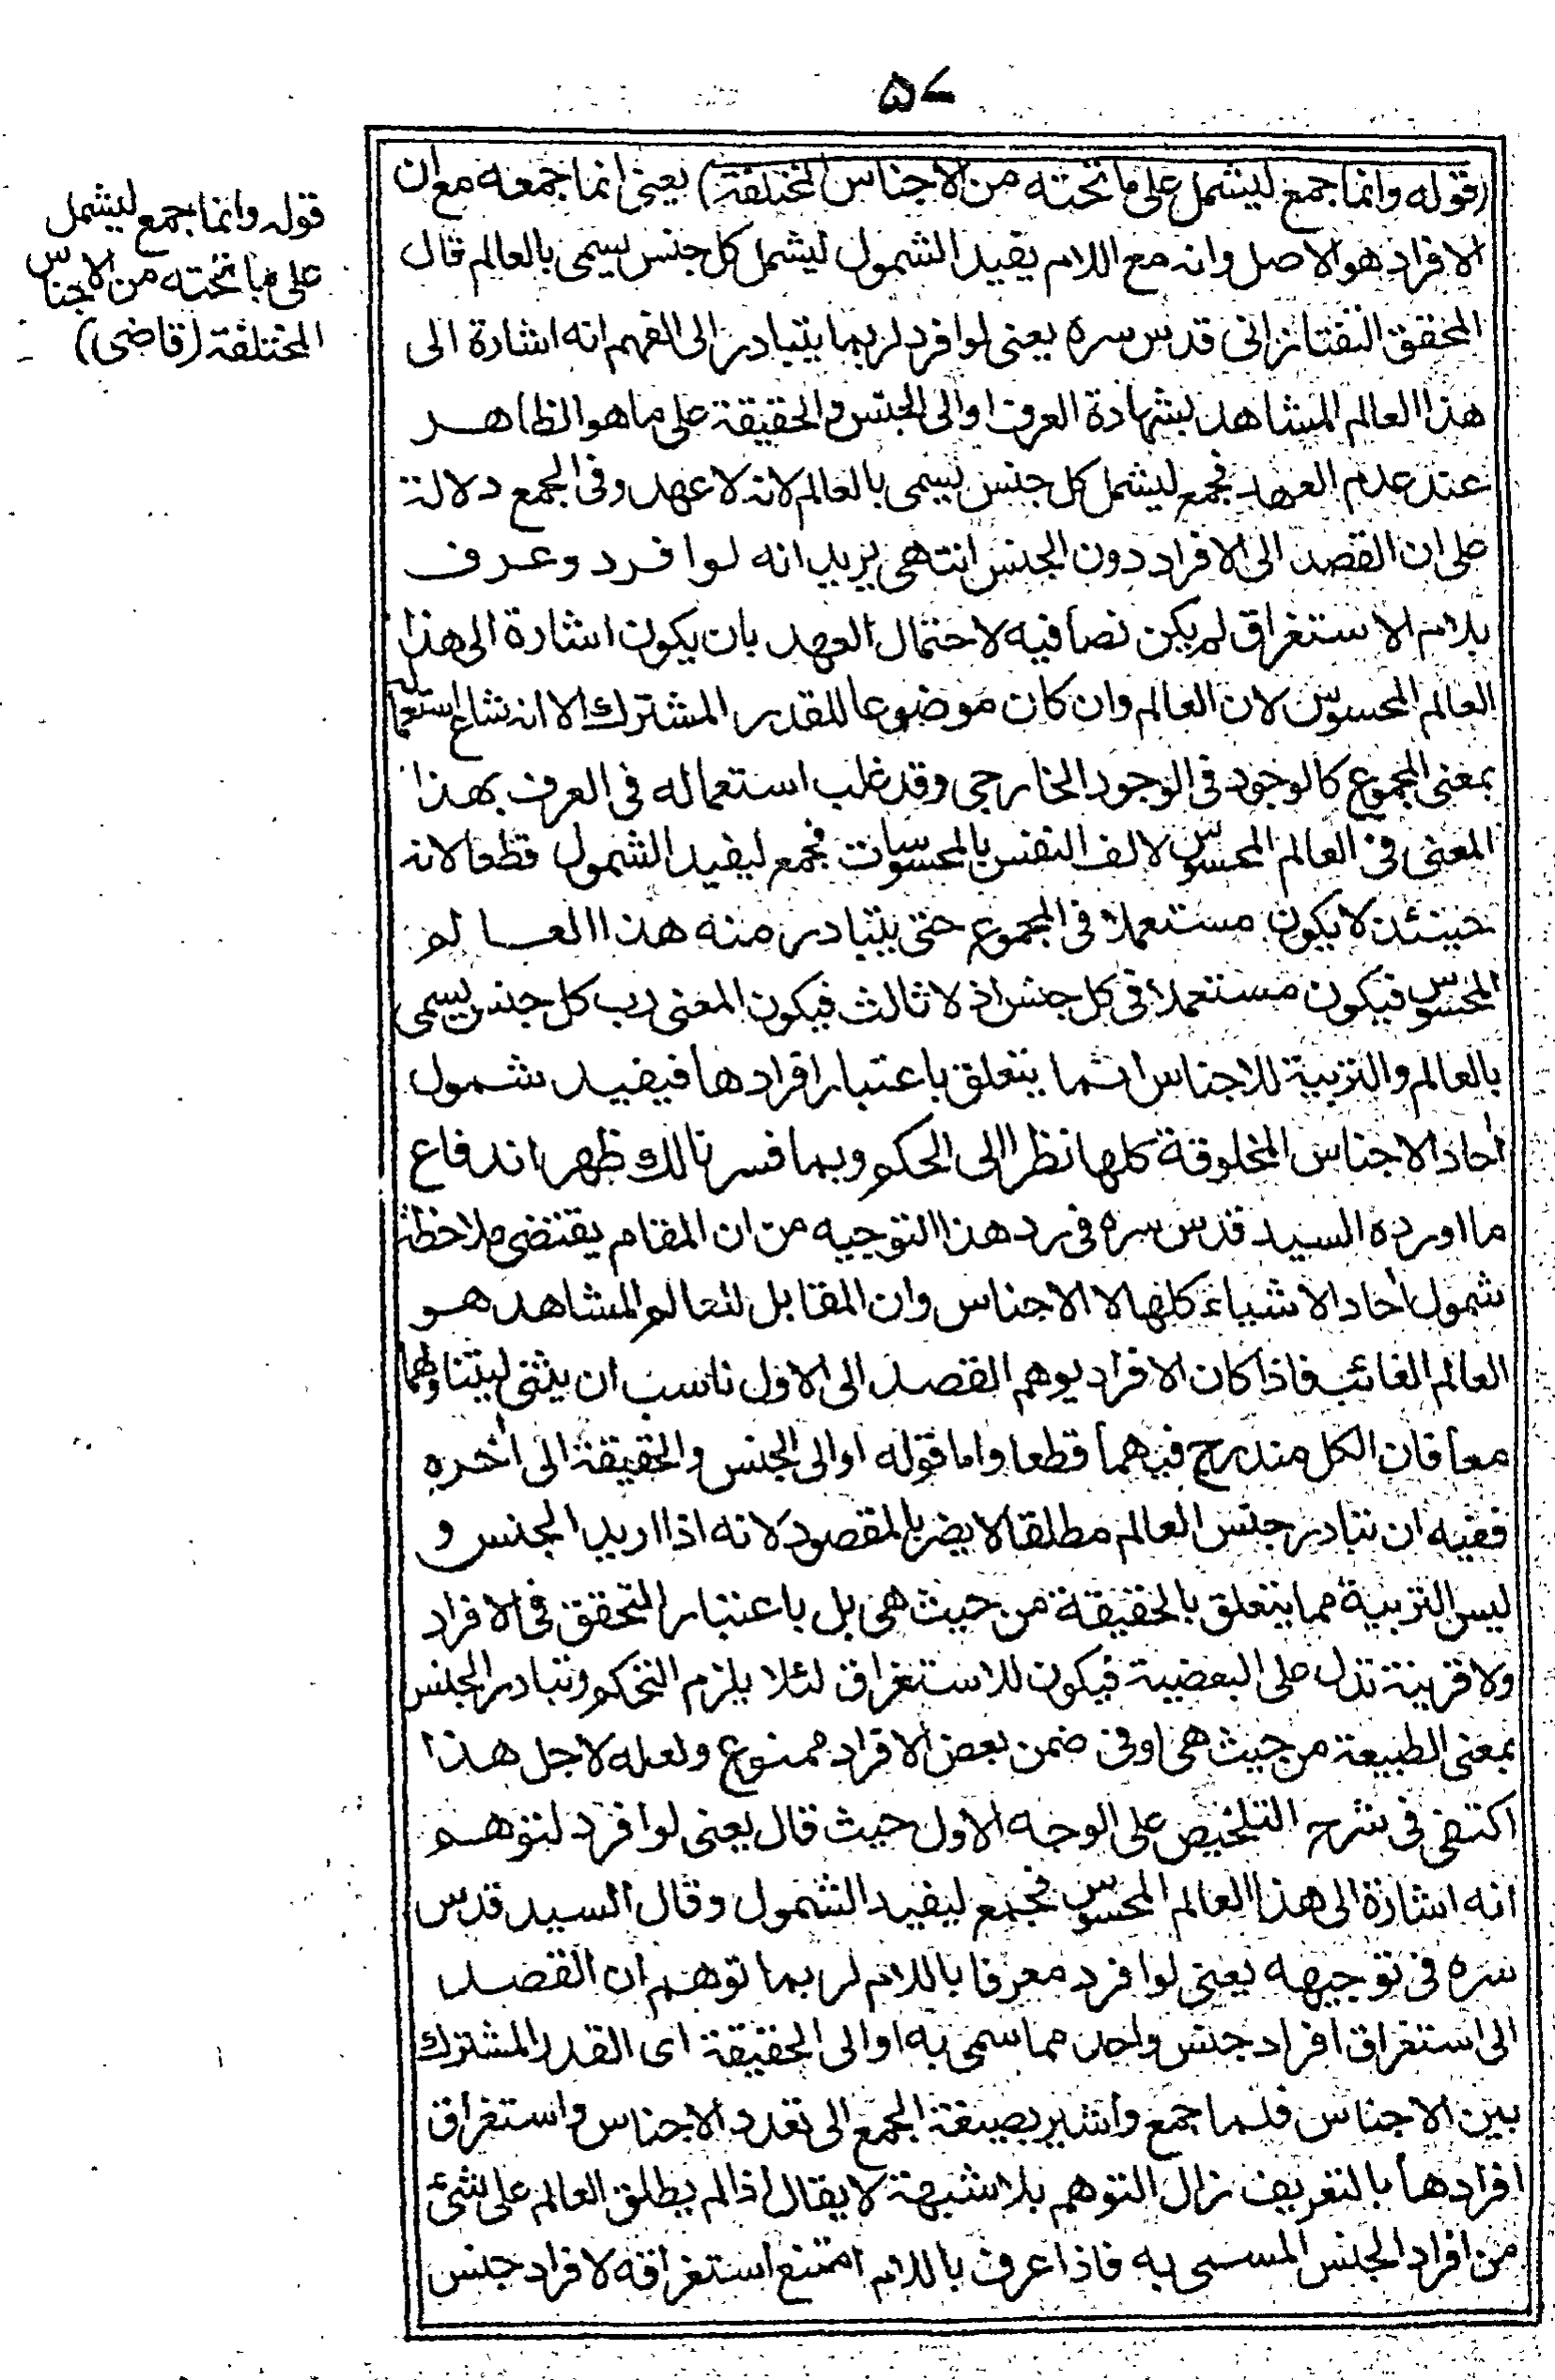 ۵۷
(قوله وانما جمع ليشمل على ما تحته من الاجناس المختلفة) يعنى انما جمعه مع ان
الافراد هو الاصل وانه مع اللام يفيد الشمول ليشمل كل جنس يسمى بالعالم قال
المحقق التفتازانى قدس سره يعنى لو افرد لربما يتبادر الى الفهم انه اشارة الى
هذا العالم المشاهد بشهادة العرف او الى الجنس والحقيقة على ما هو الظاهر
عند عدم العهد فجمع ليشمل كل جنس يسمى بالعالم لانه لا عهد وفى الجمع دلالة
على ان القصد الى الافراد دون الجنس انتهى يريد انه لو افرد وعرف
بلام الاستغراق لم يكن نصا فيه لاحتمال العهد بان يكون اشارة الى هذا
العالم المحسوس لان العالم وان كان موضوعا للقدر المشترك الا انه شاع استعماله
بمعنى المجموع كالوجود فى الوجود الخارجى وقد غلب استعماله فى العرف بهذا
المعنى فى العالم المحسوس لالف النفس بالمحسوسات فجمع ليفيد الشمول قطعا لانه
حينئذ لا يكون مستعملا فى المجموع حتى يتبادر منه هذا العالم
المحسوس فيكون مستعملا فى كل جنس اذ لا ثالث فيكون المعنى رب كل جنس يسمى
بالعالم والتربية للاجناس انما يتعلق باعتبار افرادها فيفيد شمول
احاد الاجناس المخلوقة كلها نظرا الى الحكم وبما فسرنا لك ظهر اندفاع
ما اورده السيد قدس سره فى رد هذا التوجيه من ان المقام يقتضى ملاحظة
شمول احاد الاشياء كلها لا الاجناس وان المقابل للعالم المشاهد هو
العالم الغائب فاذا كان الافراد يوهم القصد الى الاول ناسب ان يثنى ليتناولهما
معا فان الكل مندرج فيهما قطعا واما قوله او الى الجنس والحقيقة الى اخره
ففيه ان تبادر جنس العالم مطلقا لا يضر بالمقصود لانه اذا اريد الجنس و
ليس التربية مما يتعلق بالحقيقة من حيث هى بل باعتبار التحقق فى الافراد
ولا قرينة تدل على البعضية فيكون للاستغراق لئلا يلزم التحكم وتبادر الجنس
بمعنى الطبيعة من حيث هى او فى ضمن بعض الافراد ممنوع ولعله لاجل هذا
اكتفى فى شرح التلخيص على الوجه الاول حيث قال يعنى لو افرد لتوهم
انه اشارة الى هذا العالم المحسوس فجمع ليفيد الشمول وقال السيد قدس
سره فى توجيهه يعنى لو افرد معرفا باللام لربما توهم ان القصد
الى استغراق افراد جنس واحد مما سمى به او الى الحقيقة اى القدر المشترك
بين الاجناس فلما جمع واشير بصيغة الجمع الى تعدد الاجناس واستغراق
افرادها بالتعريف زال التوهم بلا شبهة لا يقال اذا لم يطلق العالم على شئ
من افراد الجنس المسمى به فاذا عرف باللام امتنع استغراقه لافراد جنس
قوله وانما جمع ليشمل
على ما تحته من الاجناس
المختلفة (قاضى)